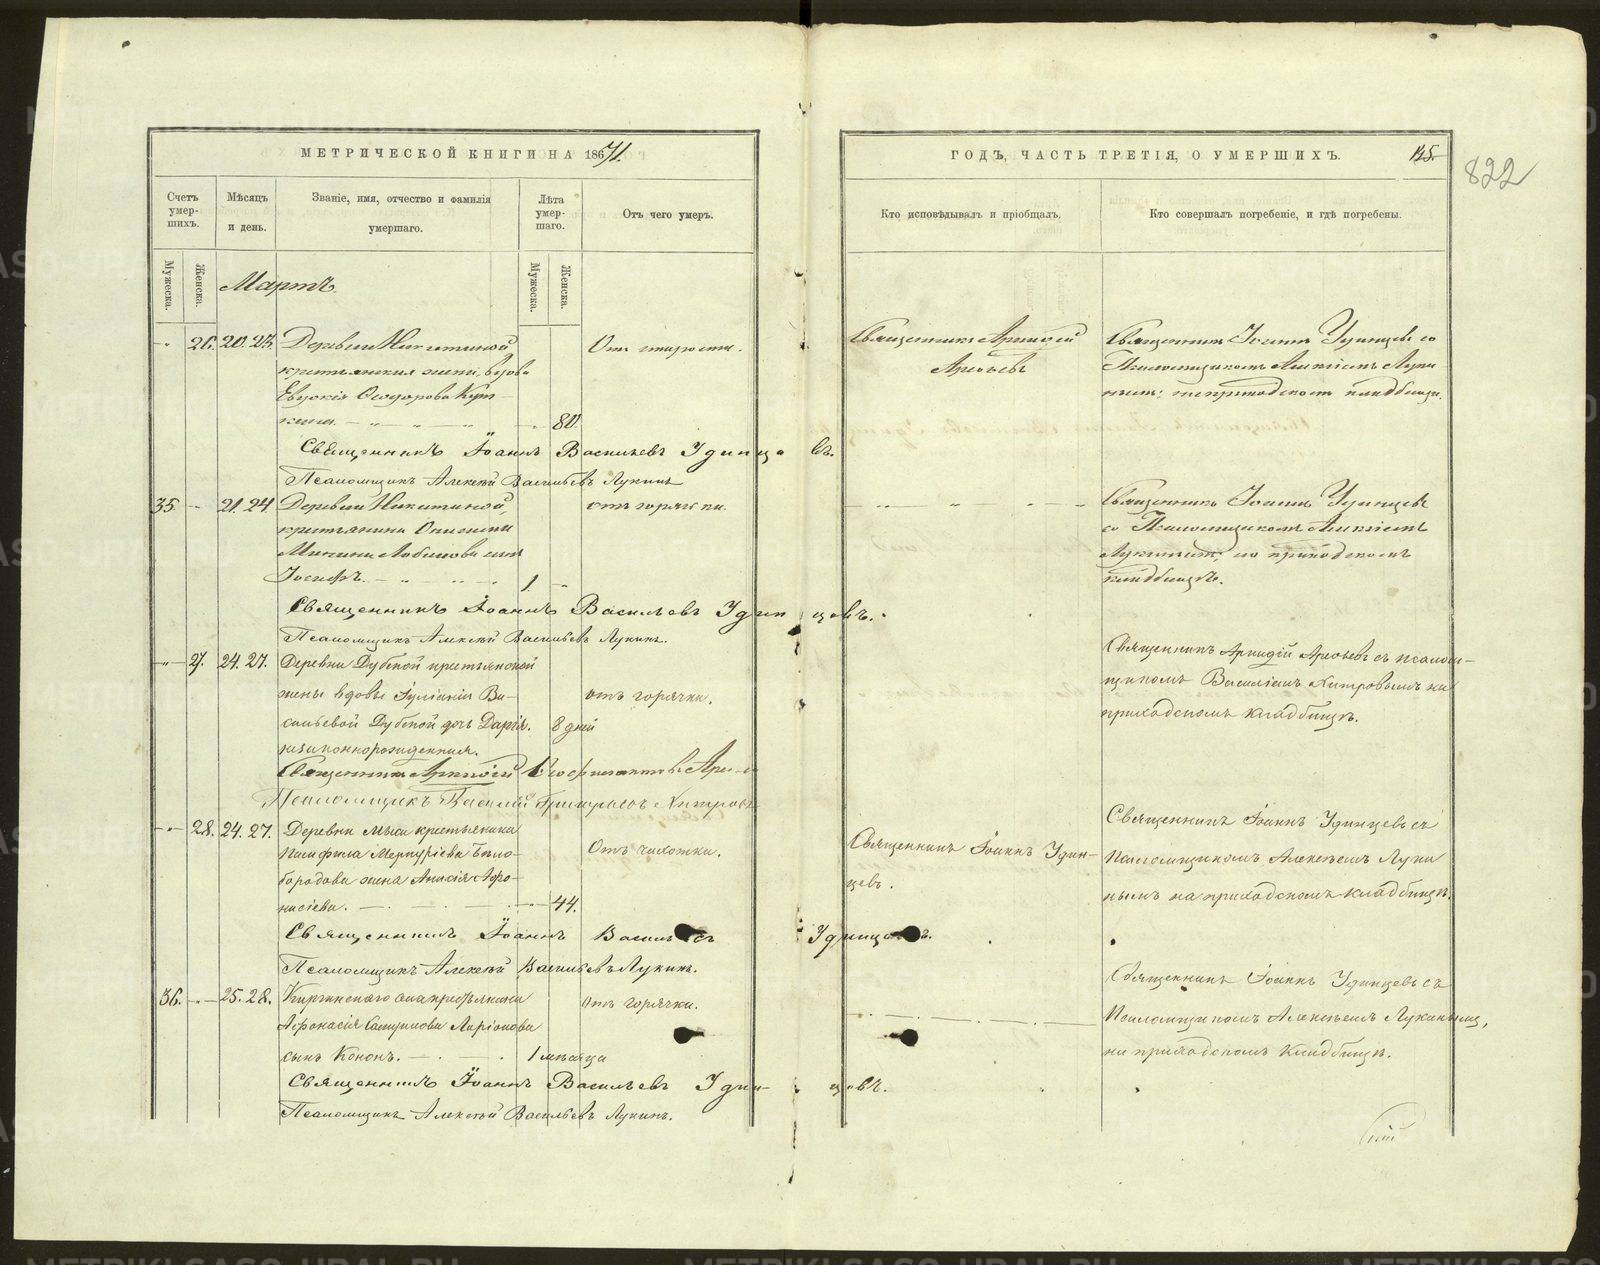 МЕТРИЧЕСКОЙ КНИГИ НА 1871.
Счетъ умер-шихъ.
Мѣсяцъ и день.
Званіе, имя, отчество и фамилія умершаго.
Лѣта умер-шаго.
Отъ чего умеръ.
Мужеска.
Женска.
Мужеска.
Женска.
Мартъ
26. 20. 23. Деревни Никитиной Отъ старости.
крестьянская жена, вдова
Евдокія Ѳеодорова
80
Священникъ Іоаннъ Васильевъ Удинцовъ.
Псаломщикъ Алексѣй Васильевъ Лукинъ
35 21. 24 Деревни Никитиной, отъ горячки.
крестьянина
сынъ
Іосифъ. 1
Священникъ Іоаннъ Васильевъ Удинцовъ.
Псаломщикъ Алексѣй Васильевъ Лукинъ.
27. 24. 27. Деревни Дубской крестьянской
жены вдовы Іуліаніи Ва- отъ горячки.
сильевой Дубской дочь Дарія. 8 дней
незаконнорожденная.
Священникъ Аркадій
Псаломщикъ Василій
28. 24. 27. Деревни Мыса крестьянина
Памфила Меркуріева Бѣло- Отъ чахотки.
бородова жена Анисія Афо-
насіева. 44.
Священникъ Іоаннъ Удинцовъ.
Псаломщикъ Алексѣй Васильевъ Лукинъ.
36. 25. 28. Киргинскаго села крестьянина Отъ горячки.
Афонасія Самуилова Ларіонова
сынъ Кононъ. 1 мѣсяца
Священникъ Іоаннъ Васильевъ Удинцовъ.
Псаломщикъ Алексѣй Васильевъ Лукинъ.
ГОДЪ, ЧАСТЬ ТРЕТІЯ, О УМЕРШИХЪ.
145.
822
Кто исповѣдывалъ и пріобщалъ.
Кто совершалъ погребеніе, и гдѣ погребены.
Священникъ Аркадій
Арефьевъ
Священникъ Іоаннъ Удинцевъ со
Псаломщикомъ Алексіемъ Луки
нымъ; на приходскомъ кладбищѣ.
Священникъ Іоаннъ Удинцевъ
со Псаломщикомъ Алексіемъ
Лукинымъ, на приходскомъ
кладбищѣ.
Священникъ Аркадій Арефьевъ съ псалом-
щикомъ Василіемъ Хитровымъ на
приходскомъ кладбищѣ.
Священникъ Іоаннъ Удин-
цевъ.
Священникъ Іоаннъ Удинцевъ съ
Псаломщикомъ Алексѣемъ Луки
нымъ на приходскомъ кладбищѣ.
Священникъ Іоаннъ Удинцевъ съ
Псаломщикомъ Алексѣемъ Лукинымъ,
на приходскомъ кладбищѣ.
METRIKI.GASO-URAL.RU